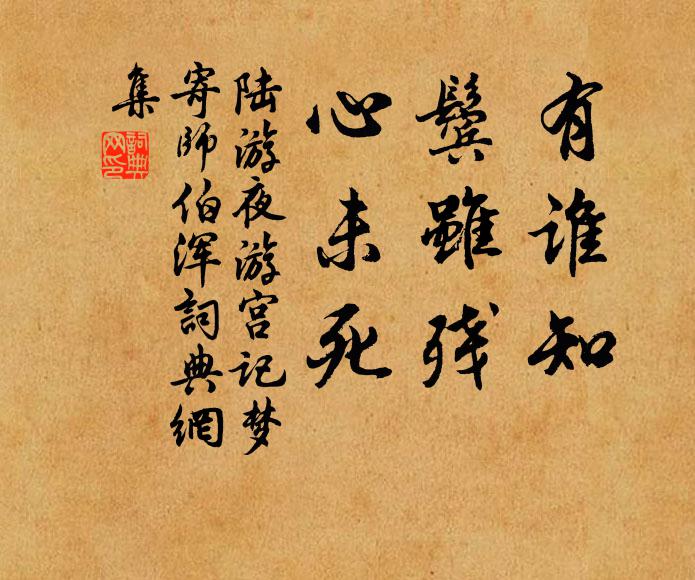 有谁知
鬓虽残
心未死
陆游夜游宫记梦
寄师伯浑詞典網
集
詞典
网印